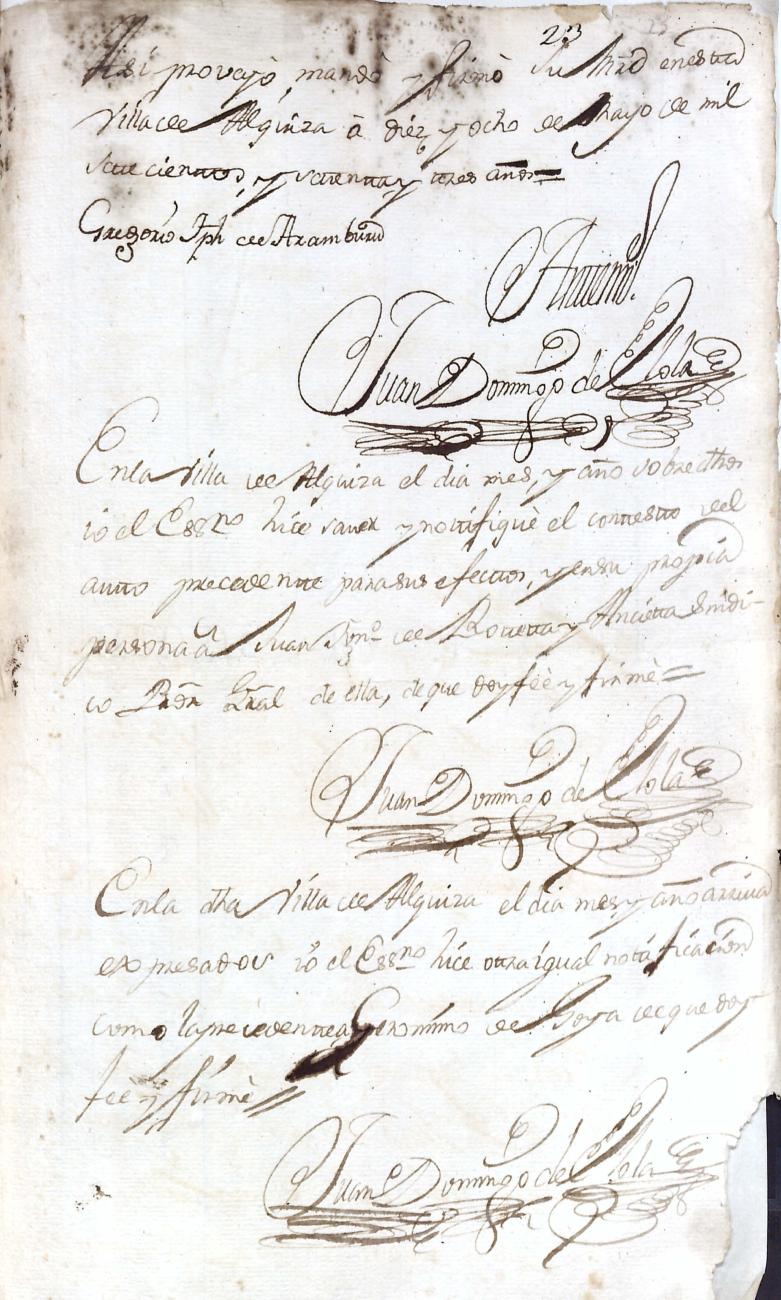 23
Asi provajò, mandò y firmò Su Mrd en esta
Villa de Alquiza â diez y ocho de Mayo de mil
setecientos, y setenta y tres años=
Gregorio Jph de Aramburu
Antemi.
Juan Domingo de Elola
En la Villa de Alquiza el dia mes, y año sobre dhos
io el Essno hice saver y notifiquè el contesto del
auto precedente para sus efectos, y en su propia
persona â Juan de y Ancieta Sindi-
co Pror Gral de ella, de que doy feè y firmè=
Juan Domingo de Elola
En la dha Villa de Alquiza el dia mes, y año arriva
expresados io el Essno hice otra igual notificacion
como la precedente a Geronimo de Goya de que doy
feè y firmè=
Juan Domingo de Elola